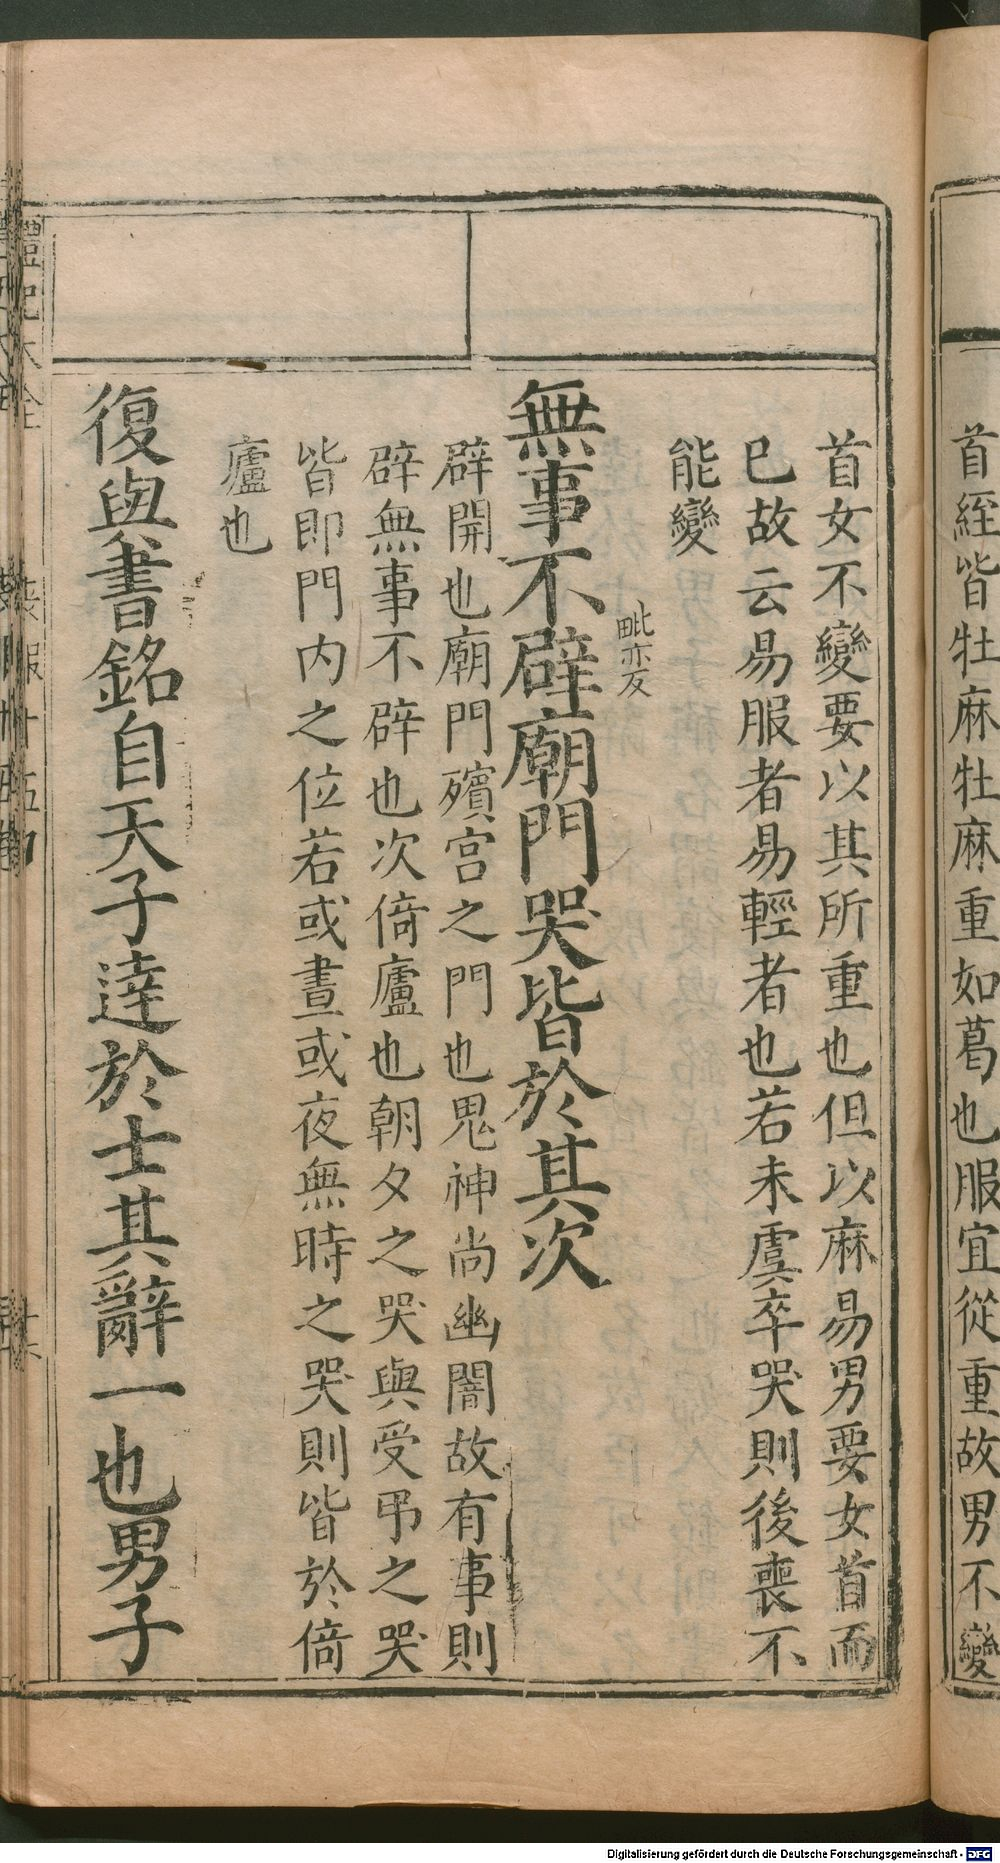 首絰皆牡麻牡麻重如葛也服宜從重故男不變
首女不變要以其所重也但以麻易男要女首而
已故云易服者易輕者也若未虞卒哭則後喪不
能變
毗亦反
無事不辟廟門哭皆於其次
辟開也廟門殯宮之門也鬼神尚幽闇故有事則
辟無事不辟也次倚廬也朝夕之哭與受弔之哭
皆即門内之位若或晝或夜無時之哭則皆於倚
廬也
復與書銘自天子達於士其辭一也男子
禮記大全
喪服
Digitalisierung gefördert durch die Deutsche Forschungsgemeinschaft - DFG